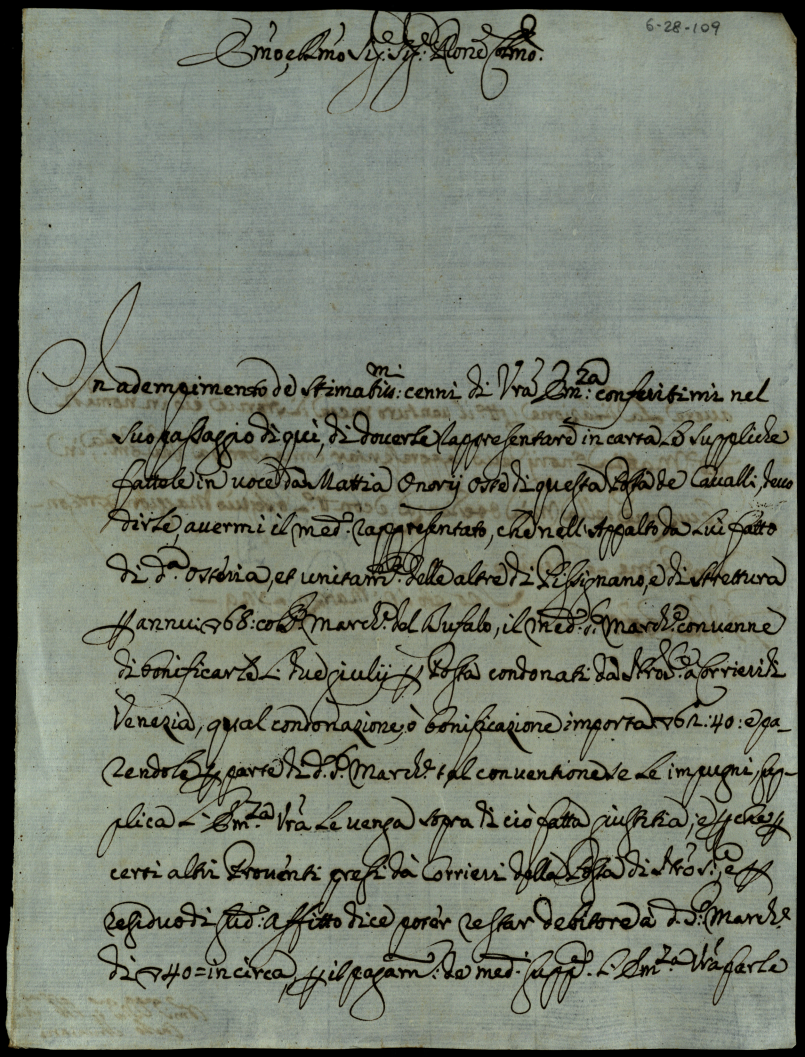 6-28-109
Emo, e Rmo Sig.r Sig.r Prone Colmo.
In adempimento de stimatis.mi cenni di Vra Em.za conferitimi nel
suo passaggio di qui, di doverle rappresentare in carta le suppliche
fattele in voce da Mattia Onorij Oste di questa Posta de Cavalli, devo
dirle, avermi il med.o rappresentato, che nell'Appalto da Lui fatto
di d.a Osteria, et unitam.te delle altre di Pissignano, e di Strettura
annui 768: col Marche. del Bufalo, il med.o S.r Marche. convenne
di bonificarle li due giulij Posta condonati da Corrieri di
Venezia, qual condonazione, ò bonificazione importa 62:40: e pa-
rendole parte di d.o S.r Marche. tal conventione se le impugni, sup-
plica L'Em.za Vra le venga sopra di ciò fatta giustitia; e perche
certi altri Proventi presi da Corrieri della Posta di e
residuo di affitto dice poter restar debitore a d.o S.r Marche.
di 40= in circa, il pagam.to de med.i supp.a L'Em.za Vra farle